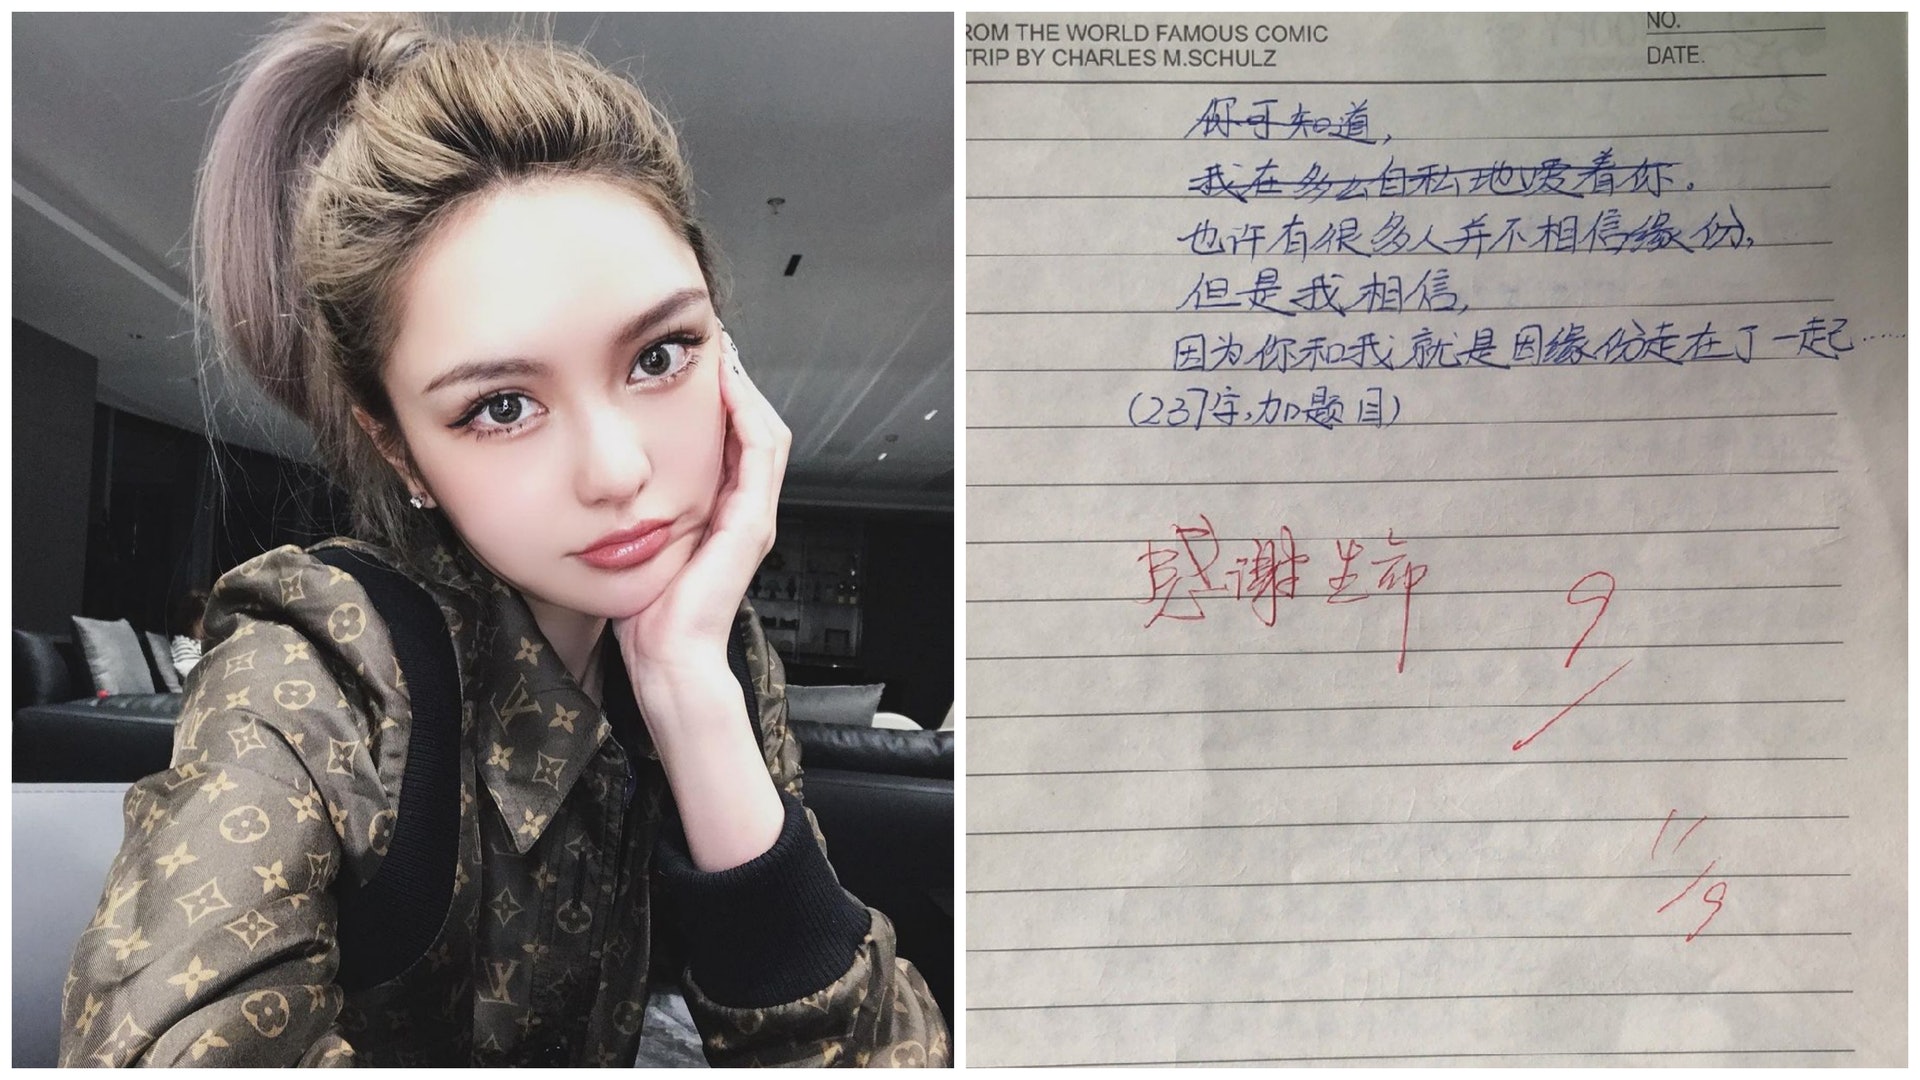 ROM THE WORLD FAMOUS COMIC
TRIP BY CHARLES M.SCHULZ
NO.
DATE.
你可知道,
我在多么自私地爱着你。
也许有很多人并不相信缘份,
但是我相信,
因为你和我就是因缘份走在了一起……
(237字,加题目)
感谢生命
9
11/9